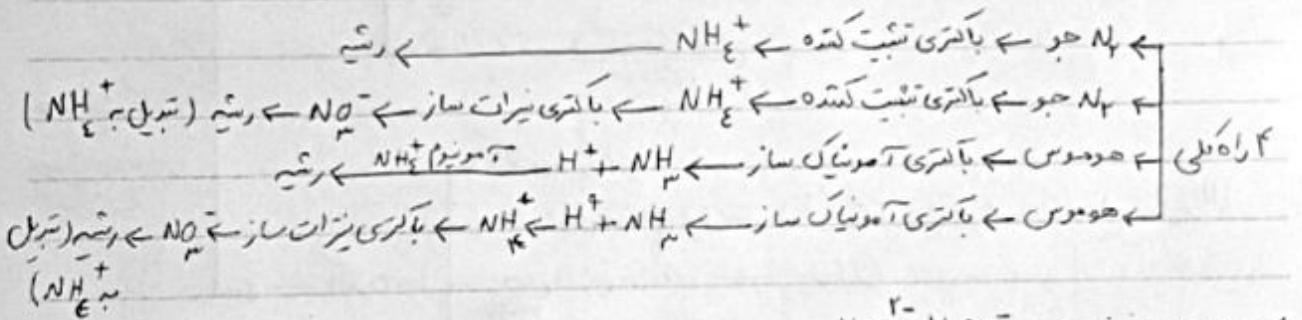 N₂ جو ← باکتری تثبیت کننده ← NH₄⁺ ← ریشه
N₂ جو ← باکتری تثبیت کننده ← NH₄⁺ ← باکتری نیترات ساز ← NO₃⁻ ← ریشه (تبدیل به NH₄⁺)
۴ راه کلی
هوموس ← باکتری آمونیاک ساز ← NH₃ + H⁺ ← آمونیوم NH₄⁺ ← ریشه
هوموس ← باکتری آمونیاک ساز ← NH₃ + H⁺ ← NH₄⁺ ← باکتری نیترات ساز ← NO₃⁻ ← ریشه (تبدیل
به NH₄⁺)